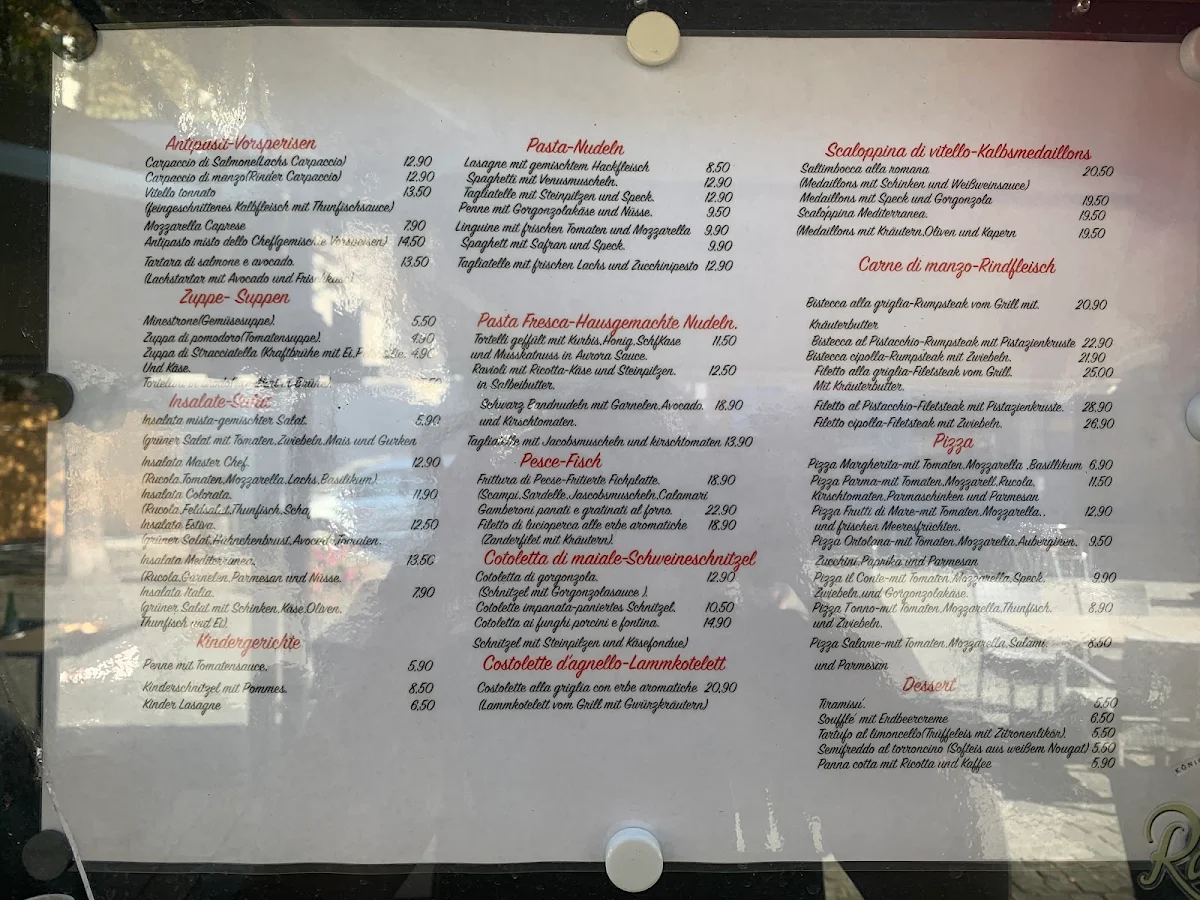 Antipasit-Vorsperisen
Carpaccio di Salmone(Lachs Carpaccio) 12.90
Carpaccio di manzo(Rinder Carpaccio) 12.90
Vitello tonnato 13.50
(feingeschnittenes Kalbfleisch mit Thunfischsauce)
Mozzarella Caprese 7.90
Antipasto misto dello Chef(gemischte Vorspeisen) 14.50
Tartara di salmone e avocado. 13.50
(Lachstartar mit Avocado und
Zuppe- Suppen
Minestrone(Gemüsesuppe). 5.50
Zuppa di pomodoro(Tomatensuppe). 4.90
Zuppa di Stracciatella (Kraftbrühe mit Ei, 4.90
Und Käse.
Insalate-Salat
Insalata mista-gemischter Salat. 5.90
(grüner Salat mit Tomaten,Zwiebeln,Mais und Gurken
Insalata Master Chef. 12.90
(Rucola,Tomaten,Mozzarella,Lachs,Basilikum).
Insalata Colorata. 11.90
(Rucola,Feldsalat,Thunfisch,
Insalata Estiva. 12.50
(grüner Salat,Hühnchenbrust,Avocado,Tomaten.
Insalata Mediterranea. 13.50
(Rucola,Garnelen,Parmesan und Nüsse.
Insalata Italia. 7.90
(grüner Salat mit Schinken,Käse,Oliven,
Thunfisch und Ei).
Kindergerichte
Penne mit Tomatensauce. 5.90
Kinderschnitzel mit Pommes. 8.50
Kinder Lasagne 6.50
Pasta-Nudeln
Lasagne mit gemischtem Hackfleisch 8.50
Spaghetti mit Venusmuscheln. 12.90
Tagliatelle mit Steinpilzen und Speck. 12.90
Penne mit Gorgonzolakäse und Nüsse. 9.50
Linguine mit frischen Tomaten und Mozzarella 9.90
Spaghett mit Safran und Speck. 9.90
Tagliatelle mit frischen Lachs und Zucchinipesto 12.90
Pasta Fresca-Hausgemachte Nudeln.
Tortelli geffült mit Kürbis,Honig,Schfkäse 11.50
und Musskatnuss in Aurora Sauce.
Ravioli mit Ricotta-Käse und Steinpilzen. 12.50
in Salbeibutter.
Schwarz Bandnudeln mit Garnelen,Avocado. 18.90
und Kirschtomaten.
Tagliatelle mit Jacobsmuscheln und kirschtomaten 13.90
Pesce-Fisch
Frittura di Pecse-Fritierte Fichplatte. 18.90
(Scampi,Sardelle,Jascobsmuscheln,Calamari
Gamberoni panati e gratinati al forno. 22.90
Filetto di lucioperca alle erbe aromatiche 18.90
(Zanderfilet mit Kräutern).
Cotoletta di maiale-Schweineschnitzel
Cotoletta di gorgonzola. 12.90
(Schnitzel mit Gorgonzolasauce ).
Cotolette impanata-paniertes Schnitzel. 10.50
Cotoletta ai funghi porcini e fontina. 14.90
Schnitzel mit Steinpilzen und Käsefondue)
Costolette d'agnello-Lammkotelett
Costolette alla griglia con erbe aromatiche 20,90
(Lammkotelett vom Grill mit Gwürzkräutern)
Scaloppina di vitello-Kalbsmedaillons
Saltimbocca alla romana 20,50
(Medaillons mit Schinken und Weißweinsauce)
Medaillons mit Speck und Gorgonzola 19.50
Scaloppina Mediterranea. 19.50
(Medaillons mit Kräutern,Oliven und Kapern 19.50
Carne di manzo-Rindfleisch
Bistecca alla griglia-Rumpsteak vom Grill mit. 20.90
Kräuterbutter
Bistecca al Pistacchio-Rumpsteak mit Pistazienkruste 22.90
Bistecca cipolla-Rumpsteak mit Zwiebeln. 21.90
Filetto alla griglia-Filetsteak vom Grill. 25.00
Mit Kräuterbutter.
Filetto al Pistacchio-Filetsteak mit Pistazienkruste. 28.90
Filetto cipolla-Filetsteak mit Zwiebeln. 26.90
Pizza
Pizza Margherita-mit Tomaten,Mozzarella ,Basillikum 6.90
Pizza Parma-mit Tomaten,Mozzarell,Rucola, 11.50
Kirschtomaten,Parmaschinken und Parmesan
Pizza Frutti di Mare-mit Tomaten,Mozzarella,. 12.90
und frischen Meeresfrüchten.
Pizza Ortolana-mit Tomaten,Mozzarella,Auberginen, 9.50
Zucchini,Paprika und Parmesan
Pizza il Conte-mit Tomaten,Mozzarella,Speck, 9.90
Zwiebeln,und Gorgonzolakäse.
Pizza Tonno-mit Tomaten,Mozzarella,Thunfisch. 8.90
und Zwiebeln.
Pizza Salame-mit Tomaten,Mozzarella,Salami. 8.50
und Parmesan
Dessert
Tiramisu'. 5.50
Souffle' mit Erdbeercreme 6.50
Tartufo al limoncello(Trüffeleis mit Zitronenlikör). 5.50
Semifreddo al torroncino (Softeis aus weißem Nougat) 5.50
Panna cotta mit Ricotta und Kaffee 5.90